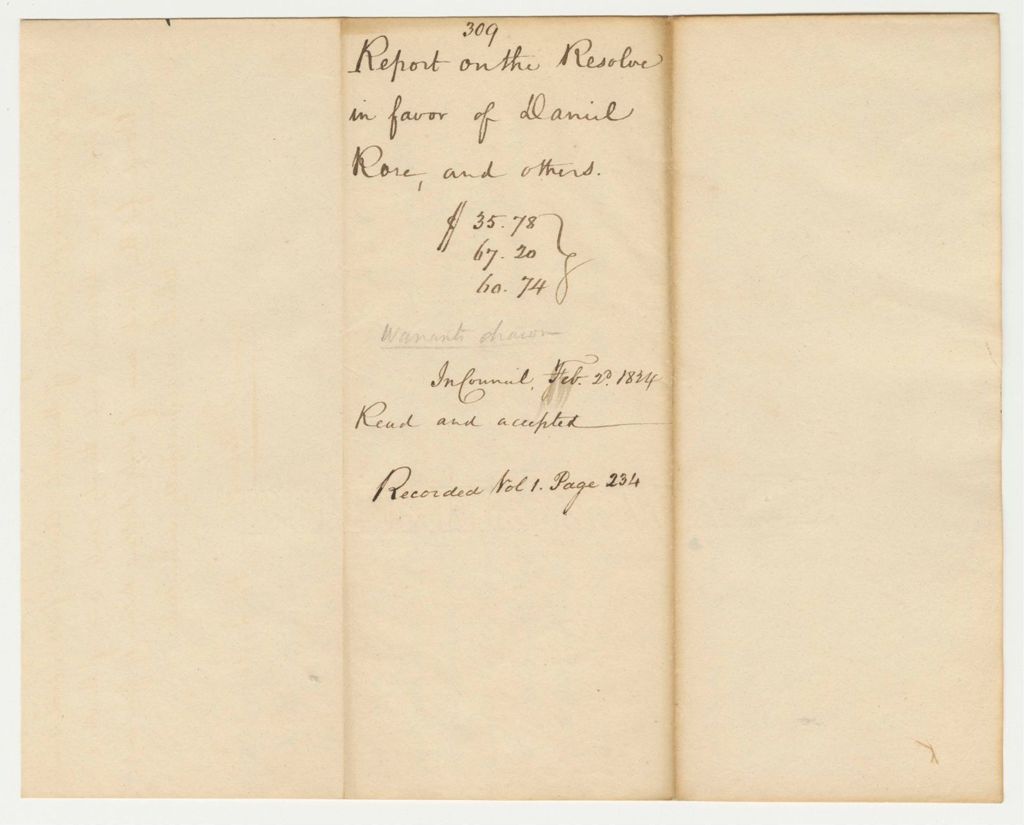 309
Report on the Resolve
in favor of Daniel
Rose, and others.
$ 35.78
67.20
60.74
Warrants drawn
In Council, Feb. 2d. 1824
Read and accepted
Recorded Vol 1. Page 234